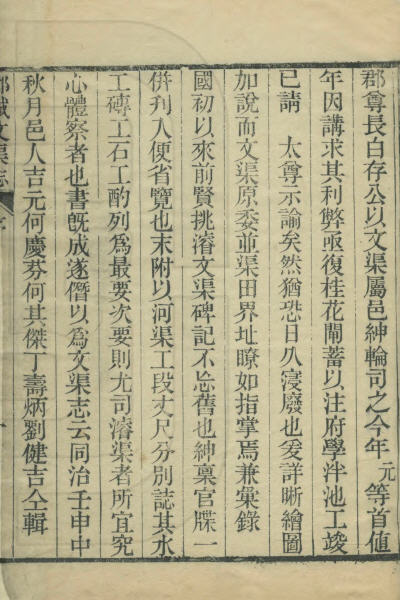 郡尊長白存公以文渠屬邑紳輪司之今年元等首值
年因講求其利弊亟復桂花閘蓄以注府學泮池工竣
已請 太尊示諭矣然猶恐日久寖廢也爰詳晰繪圖
加說而文渠原委並渠田界址瞭如指掌焉兼彙錄
國初以來前賢挑濬文渠碑記不忘舊也紳稟官牒一
併刋入便省覽也末附以河渠工段丈尺分別誌其水
工磚工石工酌列爲最要次要則尤司濬渠者所宜究
心體察者也書旣成遂僭以爲文渠志云同治壬申中
秋月邑人吉元何慶芬何其傑丁壽炳劉健吉仝輯
郡城文渠志 序